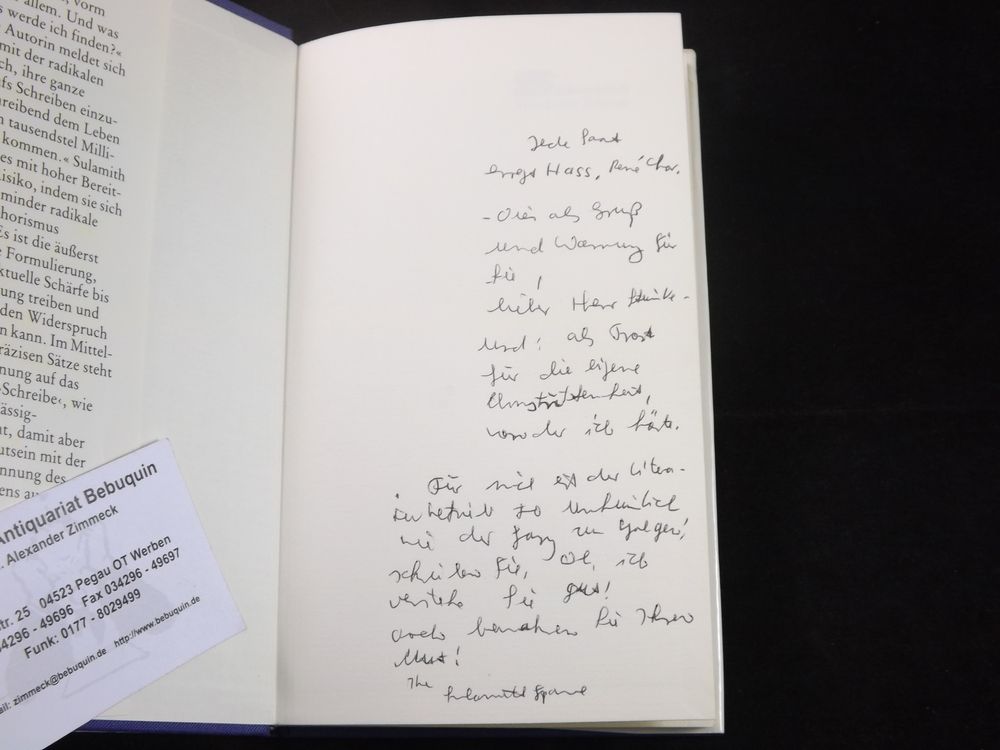 , vorm
allem. Und was
s werde ich finden?«
Autorin meldet sich
mit der radikalen
ch, ihre ganze
fs Schreiben einzu-
hreibend dem Leben
n tausendstel Milli-
kommen.« Sulamith
es mit hoher Bereit-
isiko, indem sie sich
minder radikale
horismus
Es ist die äußerst
e Formulierung,
ktuelle Schärfe bis
ung treiben und
den Widerspruch
n kann. Im Mittel-
räzisen Sätze steht
nung auf das
›Schreibe‹, wie
ässig-
nt, damit aber
utsein mit der
nnung des
ens au
Antiquariat Bebuquin
. Alexander Zimmeck
tr. 25 04523 Pegau OT Werben
34296 - 49696 Fax 034296 - 49697
Funk: 0177 - 8029499
ail: zimmeck@bebuquin.de http://www.bebuquin.de
Jede
erregt Hass, René Char.
- Dies als Gruß
und Warnung für
Sie,
lieber Herr
und: als Trost
für die eigene
Umstrittenheit,
von der ich hörte.
Für mich ist der Litera-
turbetrieb so unheimlich
wie der Gang zum Galgen,
schreiben Sie, oh, ich
verstehe Sie gut!
doch bewahren Sie Ihren
Mut!
Ihre Sulamith Sparre